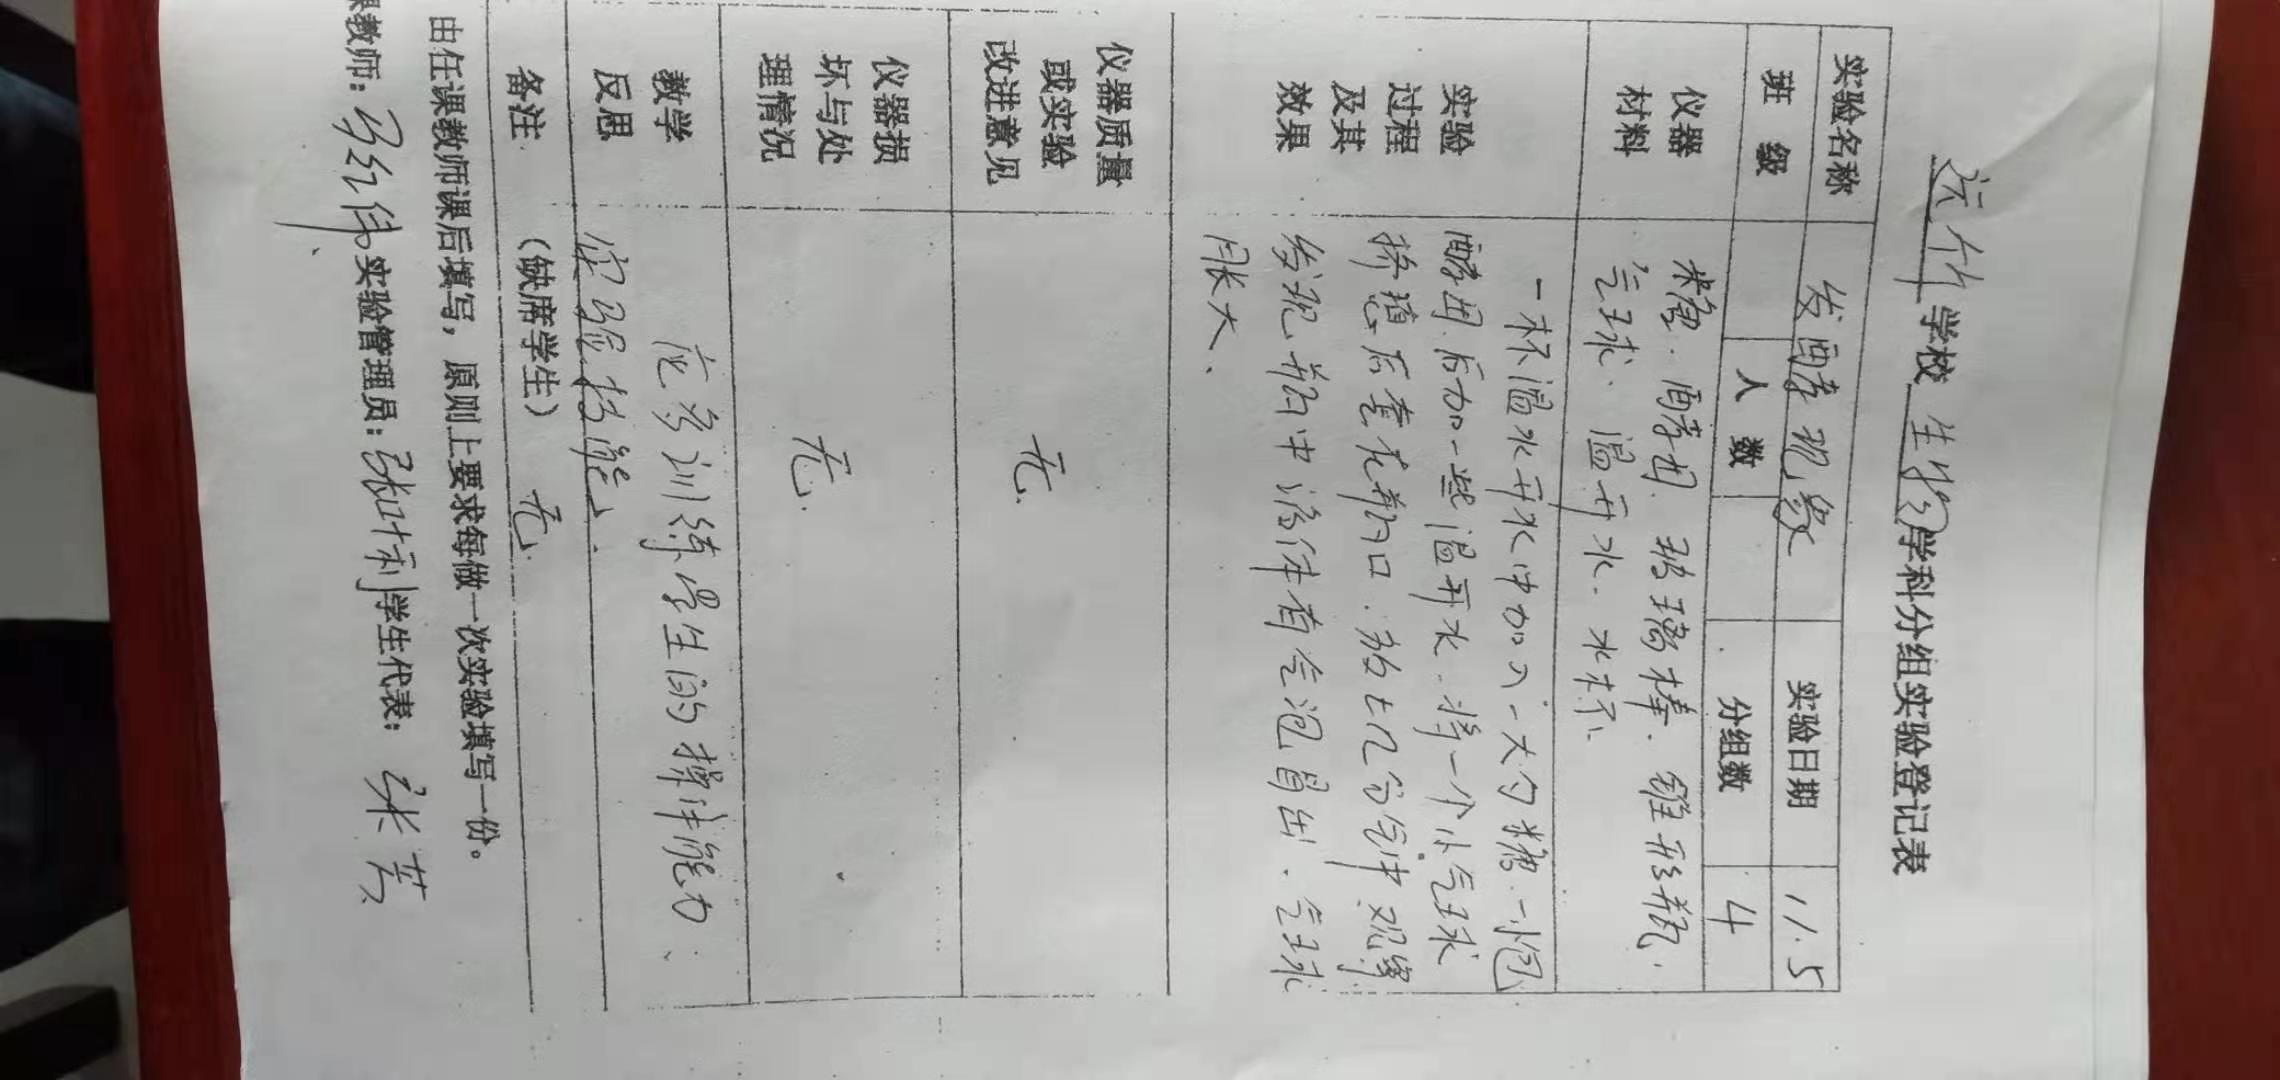 学校 生物 学科分组实验登记表
实验名称 发酵现象 实验日期 11.5
班 级 人 数 分组数 4
仪器材料 糖、酵母、玻璃棒、锥形瓶、
气球、温开水、水杯
实验过程及其效果 一杯温水开水中加入一大勺糖、一小包
酵母、后加一些温开水、将一个小气球
挤瘪后套在瓶口、分钟观察
发现瓶中液体有气泡冒出、气球
胀大、
仪器质量或实验改进意见 无
仪器损坏与处理情况 无
教学反思 应多训练学生的操作能力、
实验技能
备注 (缺席学生) 无
由任课教师课后填写，原则上要求每做一次实验填写一份。
课教师： 实验管理员： 学生代表：